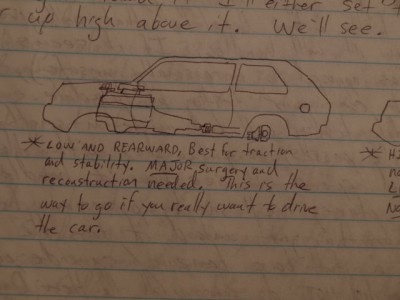 I'll either set
up high above it. We'll see.
* LOW AND REARWARD, Best for traction
and stability. MAJOR surgery and
reconstruction needed. This is the
way to go if you really want to drive
the car.
* H